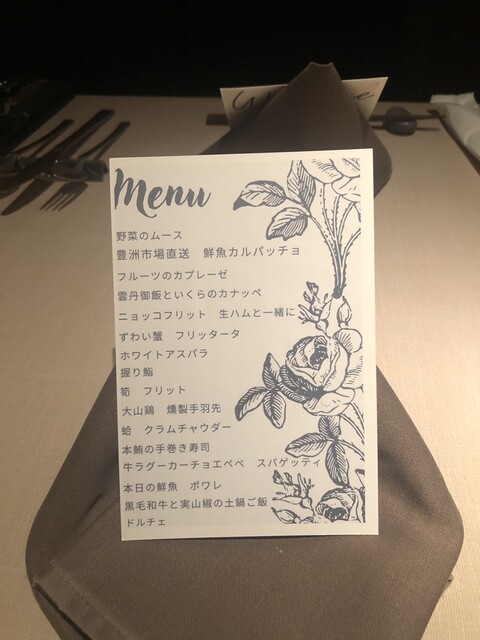 Menu
野菜のムース
豊洲市場直送　鮮魚カルパッチョ
フルーツのカプレーゼ
雲丹御飯といくらのカナッペ
ニョッコフリット　生ハムと一緒に
ずわい蟹　フリッタータ
ホワイトアスパラ
握り鮨
筍　フリット
大山鶏　燻製手羽先
蛤　クラムチャウダー
本鮪の手巻き寿司
牛ラグーカーチョエペペ　スパゲッティ
本日の鮮魚　ポワレ
黒毛和牛と実山椒の土鍋ご飯
ドルチェ